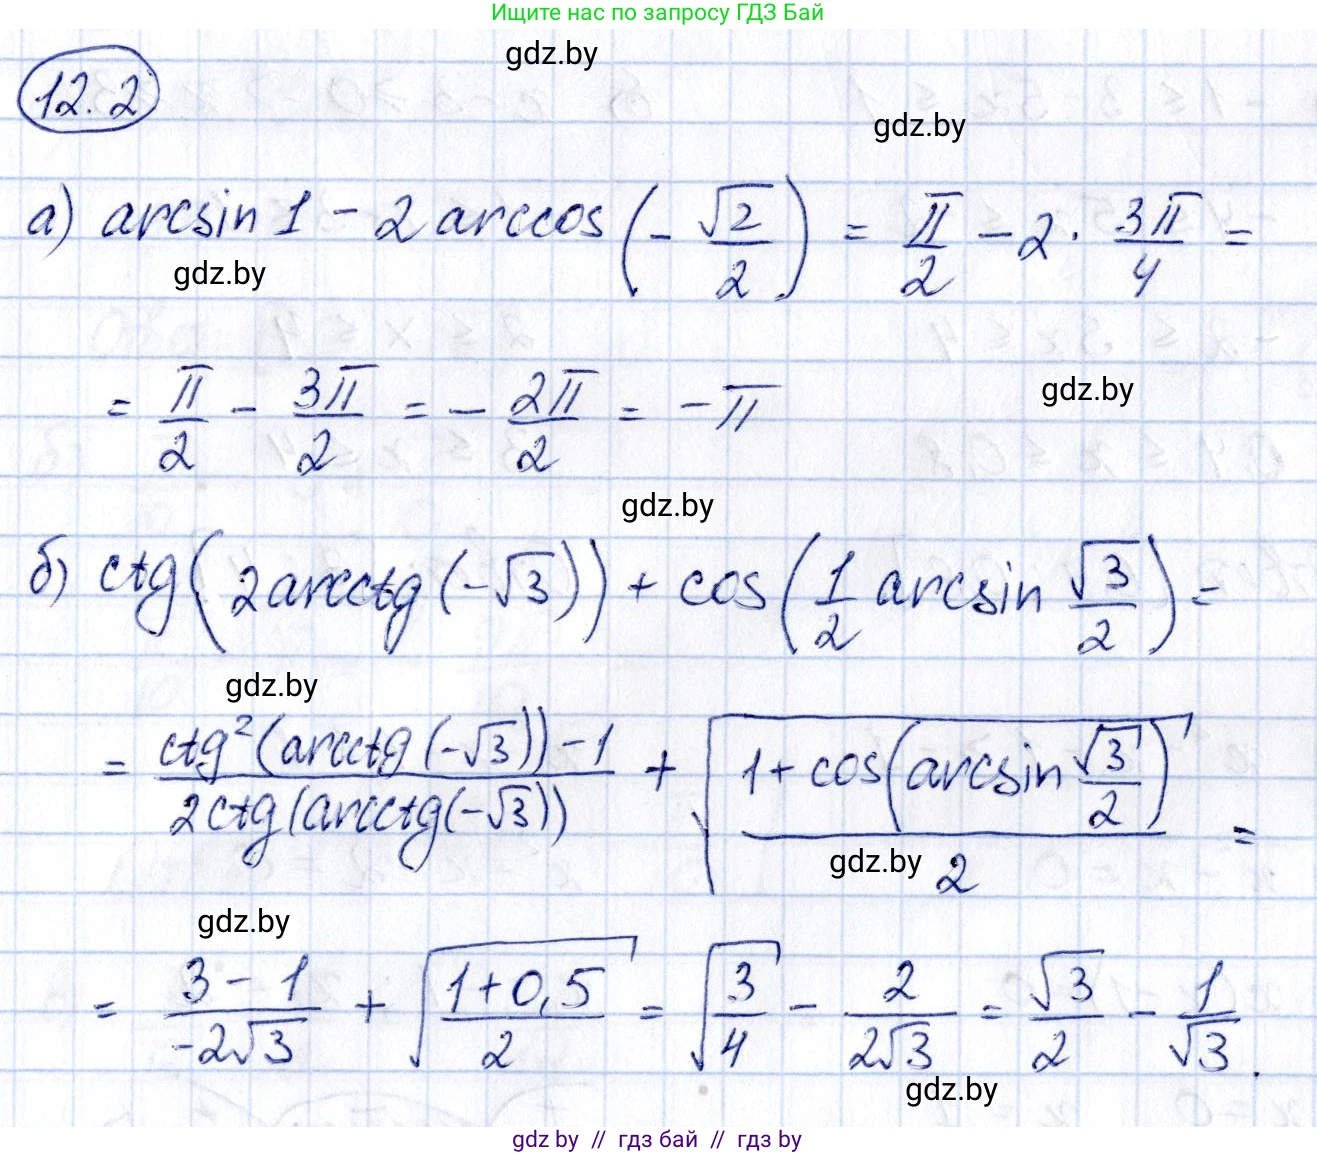 Ищите нас по запросу ГДЗ Бай
gdz.by
12.2
gdz.by
а) arcsin 1 - 2 arccos (-√2/2) = π/2 - 2 · 3π/4 =
gdz.by
= π/2 - 3π/2 = - 2π/2 = -π
gdz.by
gdz.by
б) ctg(2 arcctg(-√3)) + cos(1/2 arcsin √3/2) =
gdz.by
= ctg²(arcctg(-√3)) - 1 / 2ctg(arcctg(-√3)) + √(1 + cos(arcsin √3/2) / 2) =
gdz.by
gdz.by
= 3 - 1 / -2√3 + √(1 + 0,5 / 2) = √(3/4) - 2/2√3 = √3/2 - 1/√3.
gdz.by
gdz by // гдз бай // gdz by